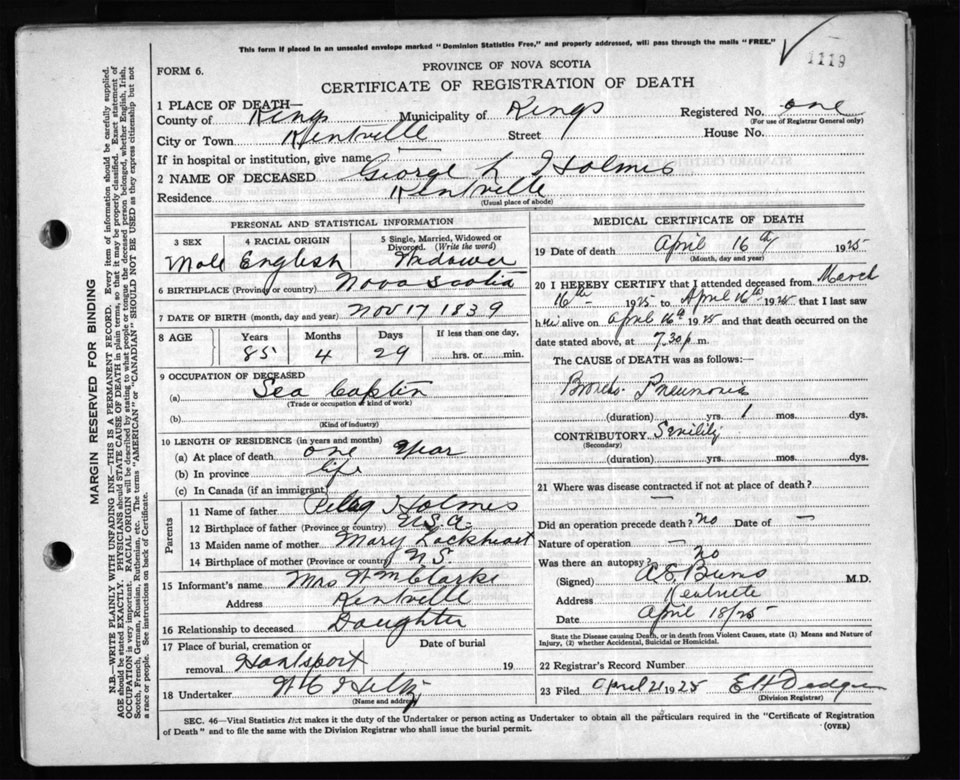 This form if placed in an unsealed envelope marked "Dominion Statistics Free," and properly addressed, will pass through the mails "FREE."
1119
FORM 6.
PROVINCE OF NOVA SCOTIA
CERTIFICATE OF REGISTRATION OF DEATH
1 PLACE OF DEATH—
County of Kings Municipality of Kings Registered No. one
(For use of Registrar General only)
City or Town Kentville Street House No.
If in hospital or institution, give name
2 NAME OF DECEASED George L Holmes
Residence Kentville
(Usual place of abode)
PERSONAL AND STATISTICAL INFORMATION
3 SEX 4 RACIAL ORIGIN 5 Single, Married, Widowed or Divorced. (Write the word)
Male English Widower
6 BIRTHPLACE (Province or country) Nova Scotia
7 DATE OF BIRTH (month, day and year) Nov 17 1839
8 AGE Years Months Days If less than one day,
85 4 29 hrs. or min.
9 OCCUPATION OF DECEASED
(a) Sea Captin
(Trade or occupation or kind of work)
(b)
(Kind of industry)
10 LENGTH OF RESIDENCE (in years and months)
(a) At place of death one Year
(b) In province life
(c) In Canada (if an immigrant)
Parents
11 Name of father Peleg Holmes
12 Birthplace of father (Province or country) U.S.A.
13 Maiden name of mother Mary Lockheart
14 Birthplace of mother (Province or country) N.S.
15 Informant's name Mrs Wm Clarke
Address Kentville
16 Relationship to deceased Daughter
17 Place of burial, cremation or removal Date of burial
Hantsport 19
18 Undertaker
(Name and address)
MEDICAL CERTIFICATE OF DEATH
19 Date of death April 16th 1925
(Month, day and year)
20 I HEREBY CERTIFY that I attended deceased from March
16th 1925 to April 16th 1925 that I last saw
him alive on April 16th 1925 and that death occurred on the
date stated above, at 7.30 p.m.
The CAUSE OF DEATH was as follows:—
Broncho Pneumonia
(duration) yrs. 1 mos. dys.
CONTRIBUTORY Senility
(Secondary)
(duration) yrs. mos. dys.
21 Where was disease contracted if not at place of death?
—
Did an operation precede death? No Date of —
Nature of operation —
Was there an autopsy? No
(Signed) M.D.
Address Kentville
Date April 18/25
State the Disease causing Death, or in death from Violent Causes, state (1) Means and Nature of
Injury, (2) whether Accidental, Suicidal or Homicidal.
22 Registrar's Record Number
23 Filed April 21 1925
(Division Registrar)
SEC. 46—Vital Statistics Act makes it the duty of the Undertaker or person acting as Undertaker to obtain all the particulars required in the "Certificate of Registration
of Death" and to file the same with the Division Registrar who shall issue the burial permit.
(OVER)
MARGIN RESERVED FOR BINDING
N.B.—WRITE PLAINLY WITH UNFADING INK—THIS IS A PERMANENT RECORD. Every item of information should be carefully supplied.
AGE should be stated EXACTLY. PHYSICIANS should STATE CAUSE OF DEATH in plain terms, so that it may be properly classified. Exact statement of
OCCUPATION is very important. RACIAL ORIGIN will be described by stating to what people or tongue the deceased person belonged, whether English, Irish,
Scotch, French, German, Russian, Ruthenian, etc. The terms "AMERICAN" or "CANADIAN" SHOULD NOT BE USED as they express citizenship but not
a race or people. See instructions on back of Certificate.